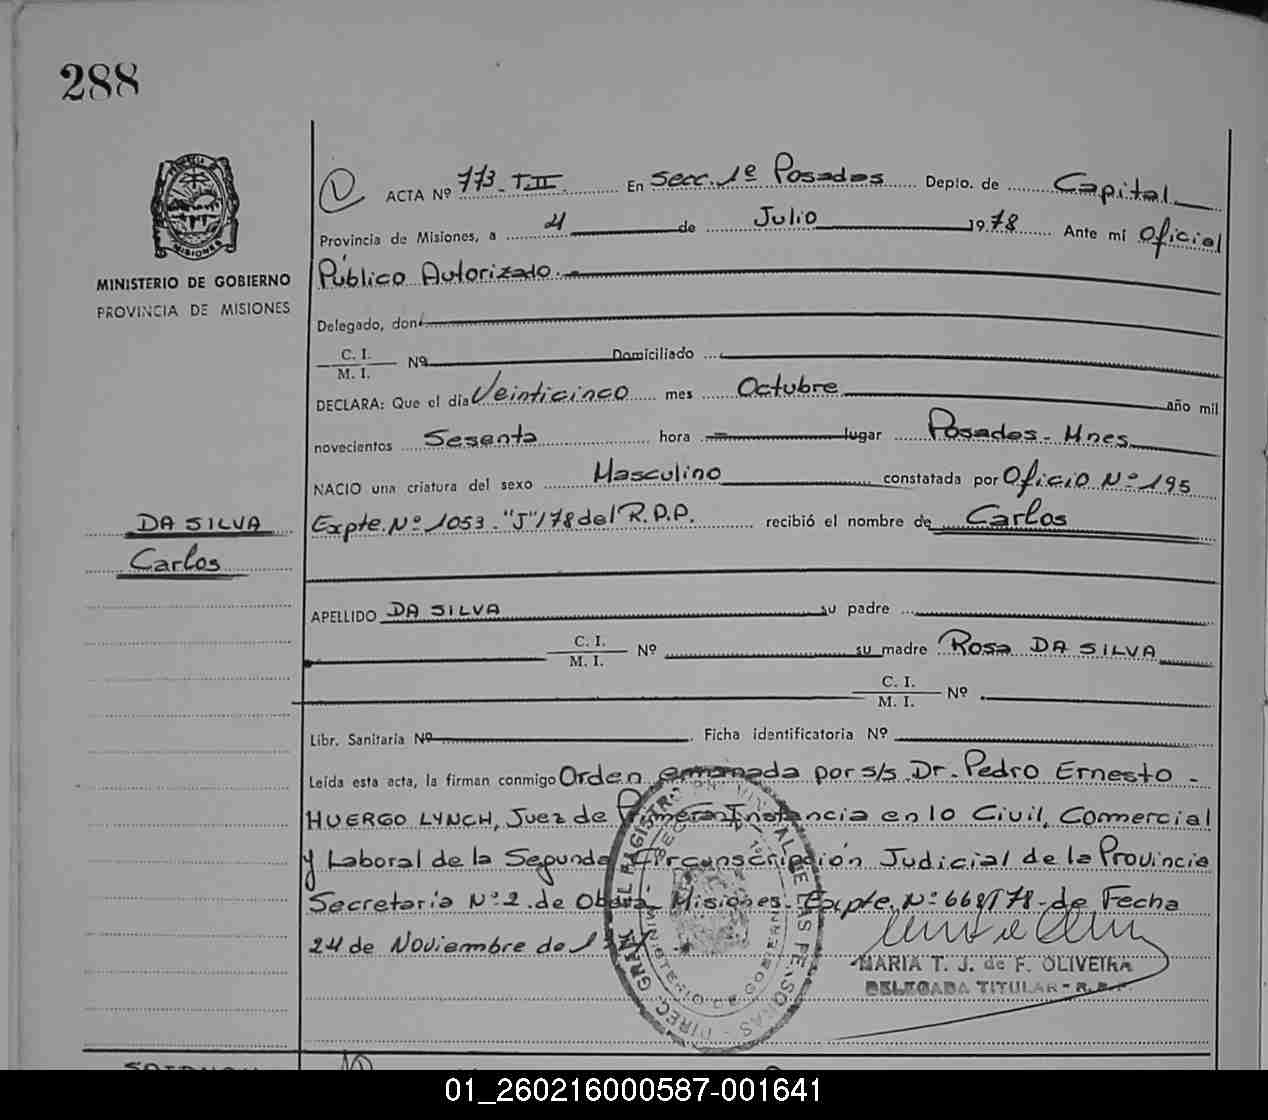 288
MINISTERIO DE GOBIERNO
PROVINCIA DE MISIONES
ACTA Nº 773 - T. II En Secc. 1ª Posadas Depto. de Capital
Provincia de Misiones, a 4 de Julio 1978 Ante mi Oficial
Público Autorizado.
Delegado, don
C. I.
M. I. Nº Domiciliado
DECLARA: Que el día Veinticinco mes Octubre año mil
novecientos Sesenta hora lugar Posadas - Mnes.
NACIO una criatura del sexo Masculino constatada por Oficio Nº 195
Expte. Nº 1053. "J"/78 del R.P.P. recibió el nombre de Carlos
DA SILVA
Carlos
APELLIDO DA SILVA su padre
C. I.
M. I. Nº su madre Rosa DA SILVA
C. I.
M. I. Nº
Libr. Sanitaria Nº Ficha identificatoria Nº
Leída esta acta, la firman conmigo Orden emanada por s/s Dr. Pedro Ernesto -
HUERGO LYNCH, Juez de Primera Instancia en lo Civil, Comercial
y Laboral de la Segunda Circunscripción Judicial de la Provincia
Secretaría Nº 2 de Oberá - Misiones - Expte. Nº 668/78 - de Fecha
24 de Noviembre de
MARIA T. J. de F. OLIVEIRA
DELEGADA TITULAR - R. P. P.
DIREC. GRAL. REGISTRO PROVINCIAL DE LAS PERSONAS
MINISTERIO DE GOBIERNO
01_260216000587-001641